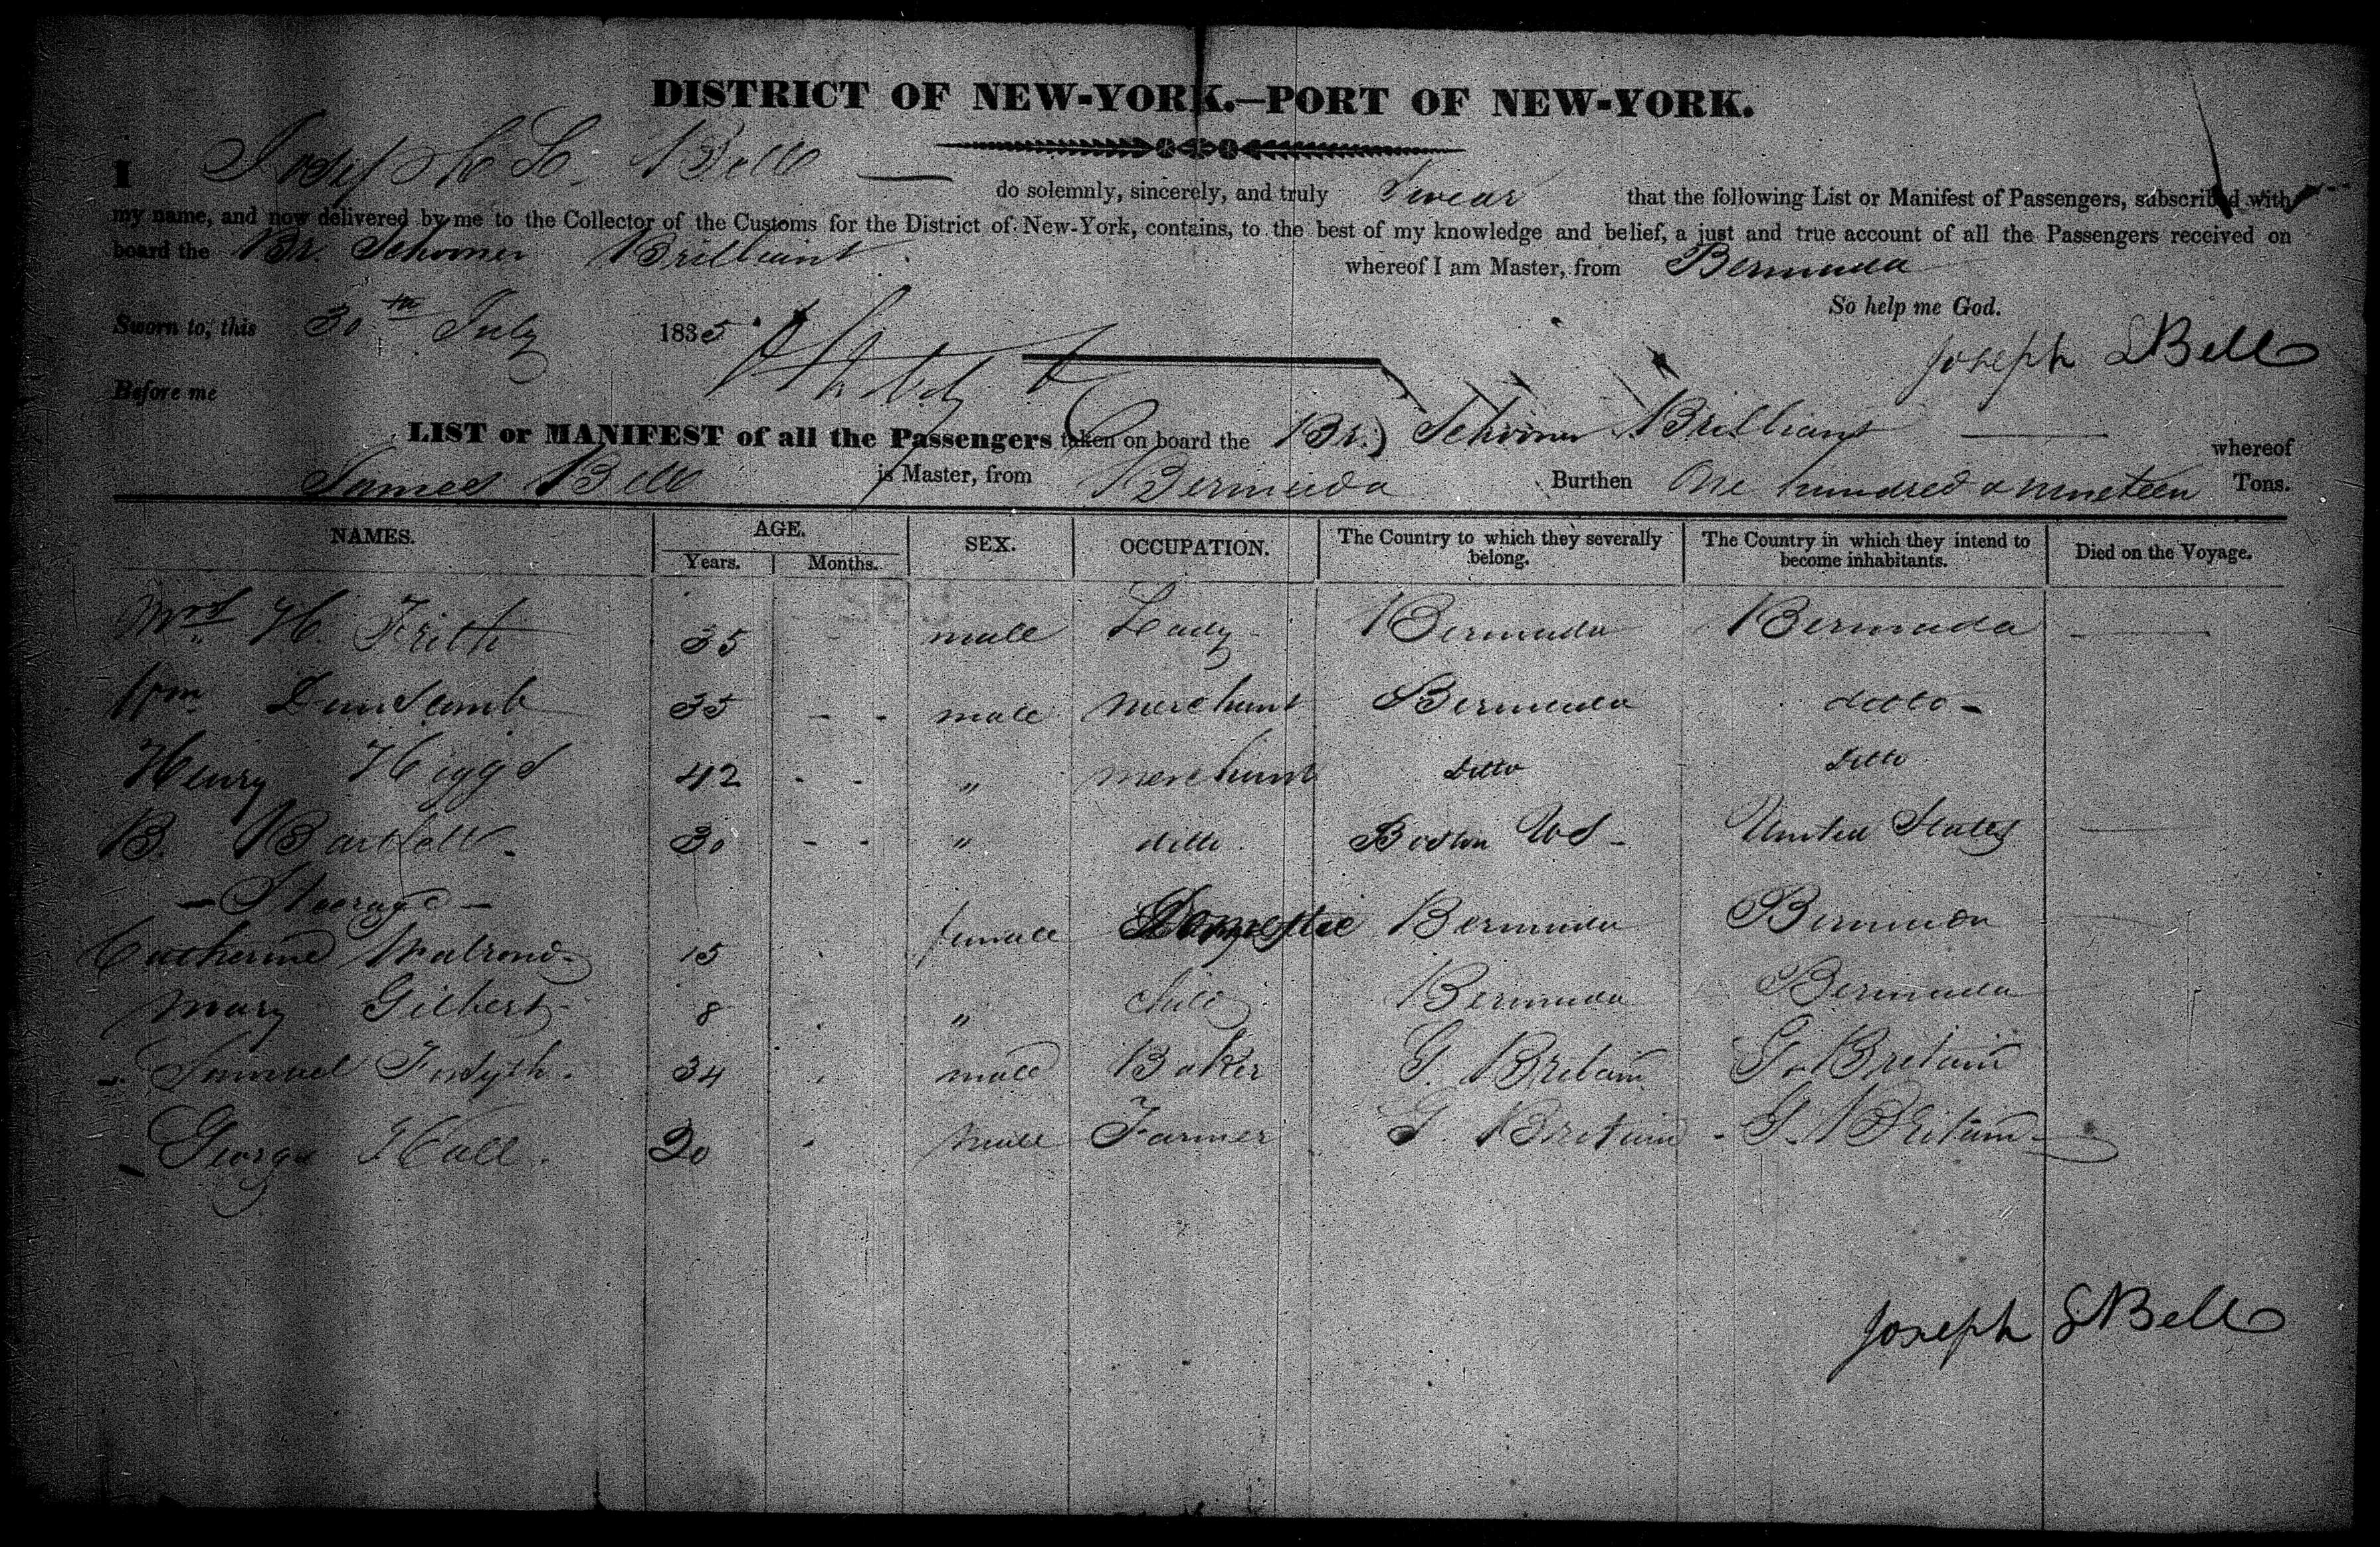 DISTRICT OF NEW-YORK.—PORT OF NEW-YORK.
I Joseph S. Bell — do solemnly, sincerely, and truly Swear that the following List or Manifest of Passengers, subscribed with
my name, and now delivered by me to the Collector of the Customs for the District of New-York, contains, to the best of my knowledge and belief, a just and true account of all the Passengers received on
board the Br. Schooner Brilliant whereof I am Master, from Bermuda
So help me God.
Sworn to, this 30th July 1835
Joseph S Bell
Before me
LIST or MANIFEST of all the Passengers taken on board the Br. Schooner Brilliant — whereof
James Bell is Master, from Bermuda Burthen One hundred & nineteen Tons.
NAMES. AGE. SEX. OCCUPATION. The Country to which they severally belong. The Country in which they intend to become inhabitants. Died on the Voyage.
Years. Months.
Mrs H. Frith 35 - male Lady Bermuda Bermuda —
Wm Dunscomb 35 - - male merchant Bermuda ditto -
Henry Higgs 42 - - " merchant ditto ditto
B. Bartlett 30 - - " ditto Boston US - United States —
- Steerage -
Catherine Walrond 15 female Domestic Bermuda Bermuda
Mary Gilbert 8 " Child Bermuda Bermuda
Samuel Forsyth. 34 male Baker G. Britain G. Britain
George Hall. 20 male Farmer G. Britain - G. Britain -
Joseph S Bell